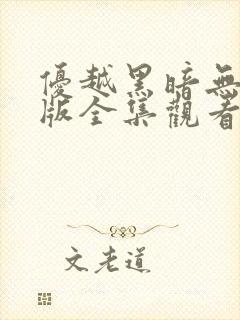 優越黑暗無
版全集觀看
文老道